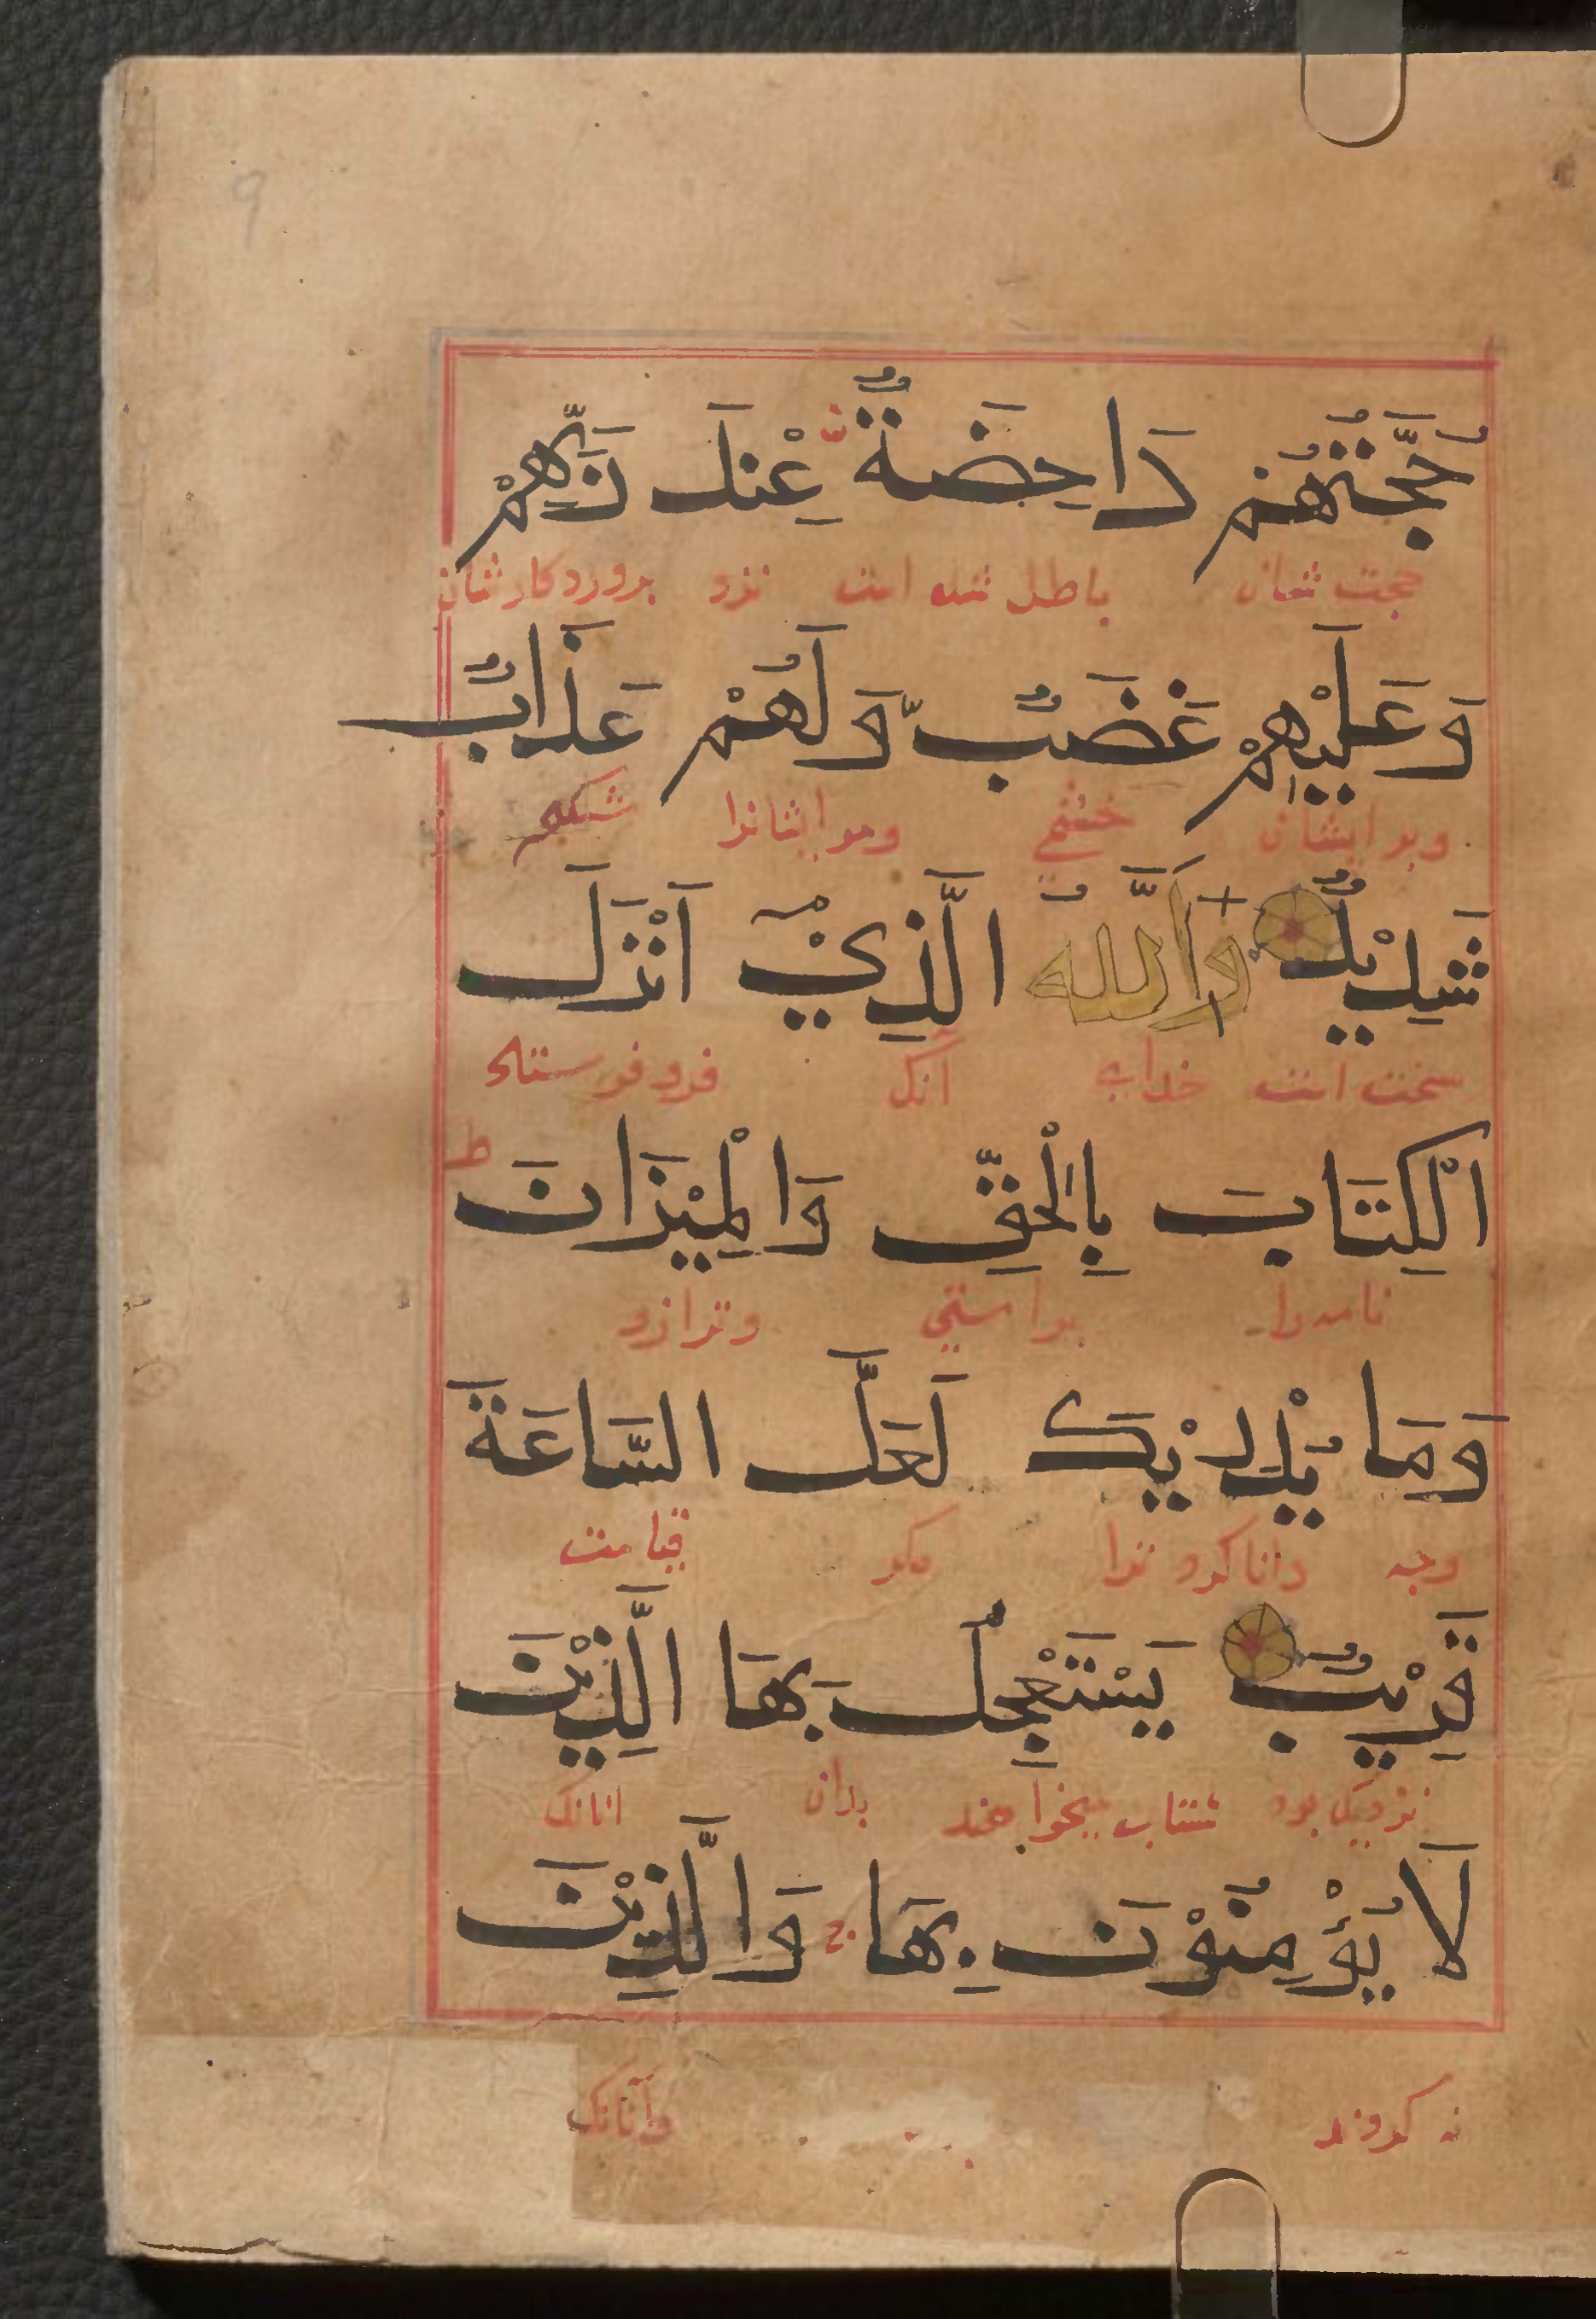 حُجَّتُهُمْ دَاحِضَةٌ عِنْدَ رَبِّهِمْ
حجت شان باطل شده است نزد بروردكار شان
وَعَلَيْهِمْ غَضَبٌ وَّلَهُمْ عَذَابٌ
وبر ايشان خشمي ومر ايشانرا
شَدِيْدٌ وَاَللَّهُ الَّذِيْ اَنْزَلَ
سخت است خداى آنك فرو فرستاد
الْكِتَابَ بِالْحَقِّ وَالْمِيْزَانَ ط
نامه را براستي وترازو
وَمَا يُدْرِيْكَ لَعَلَّ السَّاعَةَ
وچه دانا كرد ترا مكر قيامت
قَرِيْبٌ يَسْتَعْجِلُ بِهَا الَّذِيْنَ
نزديك بود شتاب ميخواهند بدان انانك
لَا يُؤْمِنُوْنَ بِهَا ج وَالَّذِيْنَ
نه كروند وآنانك